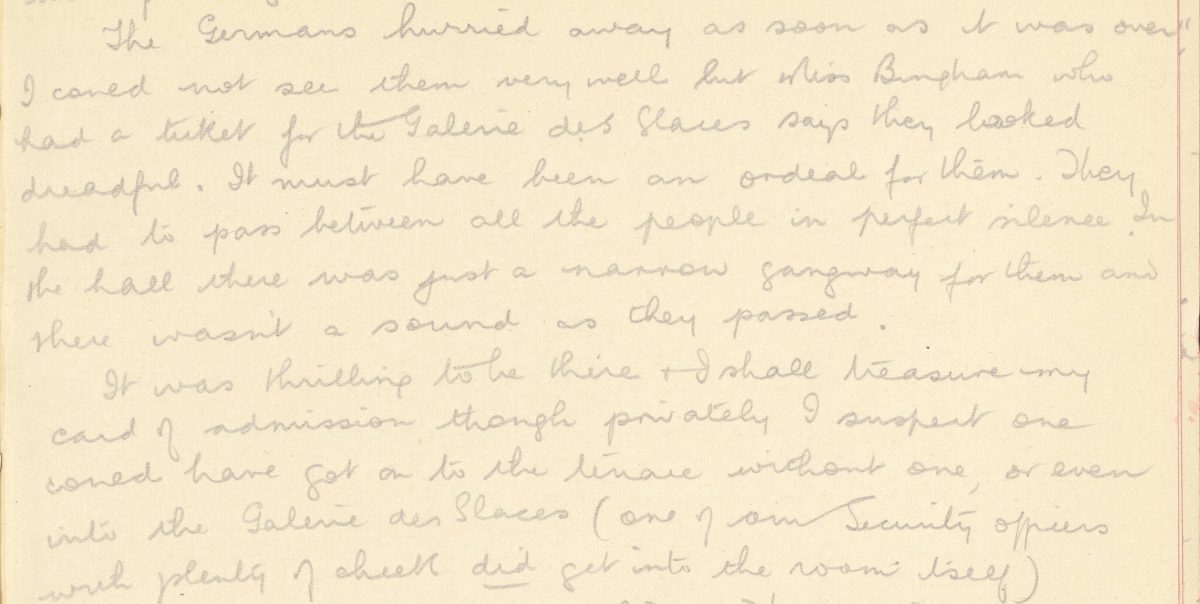 The Germans hurried away as soon as it was over"
I could not see them very well but Miss Bingham who
had a ticket for the Galerie des Glaces says they looked
dreadful. It must have been an ordeal for them. They
had to pass between all the people in perfect silence. In
the hall there was just a narrow gangway for them and
there wasn't a sound as they passed.
It was thrilling to be there & I shall treasure my
card of admission though privately I suspect one
could have got on to the terrace without one, or even
into the Galerie des Glaces (one of our Security officers
with plenty of cheek did get into the room itself)